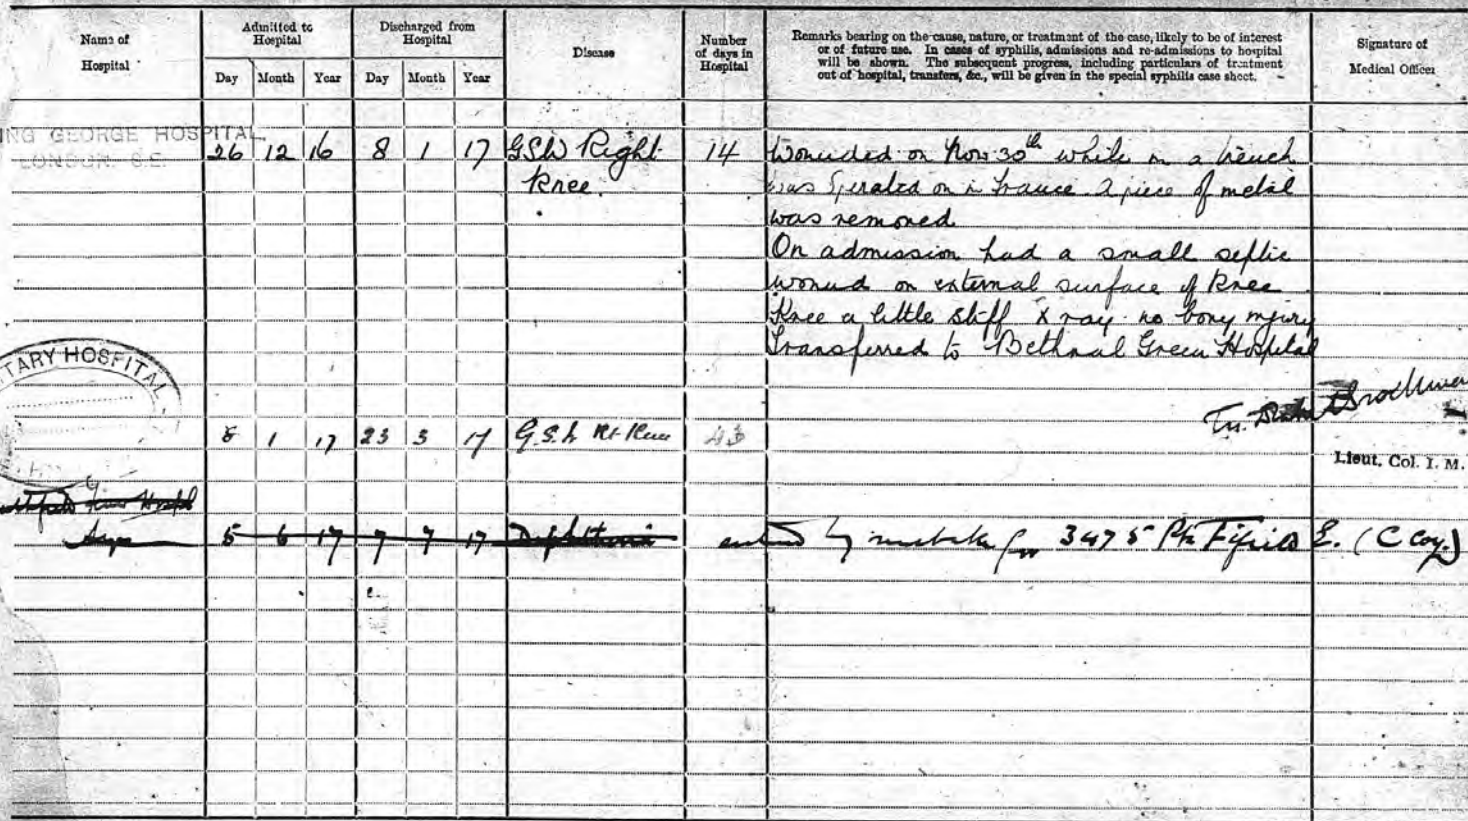 Name of Hospital
Admitted to Hospital
Discharged from Hospital
Disease
Number of days in Hospital
Remarks bearing on the cause, nature, or treatment of the case, likely to be of interest
or of future use. In cases of syphilis, admissions and re-admissions to hospital
will be shown. The subsequent progress, including particulars of treatment
out of hospital, transfers, &c., will be given in the special syphilis case sheet.
Signature of Medical Officer
Day Month Year Day Month Year
ING GEORGE HOSPITAL
LONDON S.E.
26 12 16 8 1 17 GSW Right 14 Wounded on Nov 30th while in a trench
Knee. was operated on in France a piece of metal
was removed
On admission had a small septic
wound on external surface of knee
Knee a little stiff X ray no bony injury
Transferred to Bethnal Green Hospital
TARY HOSPITAL
8 1 17 23 3 17 G.S.W Rt Knee
Lieut. Col. I. M.
5 6 17 7 7 17 Diphtheria entered by mistake for 3475 Pte Fifield E. (C Coy.)